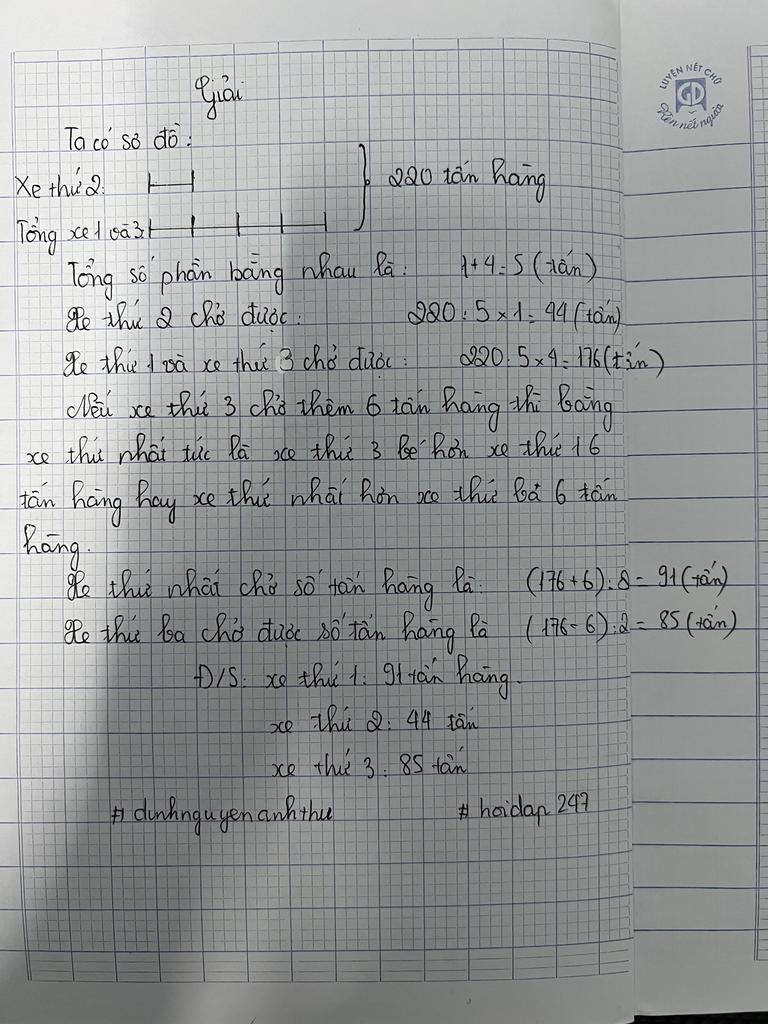 LUYỆN NÉT CHỮ
GD
Rèn nết người
Giải
Ta có sơ đồ:
Xe thứ 2:
220 tấn hàng
Tổng xe 1 và 3:
Tổng số phần bằng nhau là: 1+4=5 (tấn)
Xe thứ 2 chở được: 220:5×1=44 (tấn)
Xe thứ 1 và xe thứ 3 chở được: 220:5×4=176 (tấn)
Nếu xe thứ 3 chở thêm 6 tấn hàng thì bằng
xe thứ nhất tức là xe thứ 3 bé hơn xe thứ 1 6
tấn hàng hay xe thứ nhất hơn xe thứ ba 6 tấn
hàng.
Xe thứ nhất chở số tấn hàng là: (176+6):2=91 (tấn)
Xe thứ ba chở được số tấn hàng là (176-6):2=85 (tấn)
Đ/S: xe thứ 1: 91 tấn hàng.
xe thứ 2: 44 tấn
xe thứ 3: 85 tấn
#dinhnguyenanhthu #hoidap247